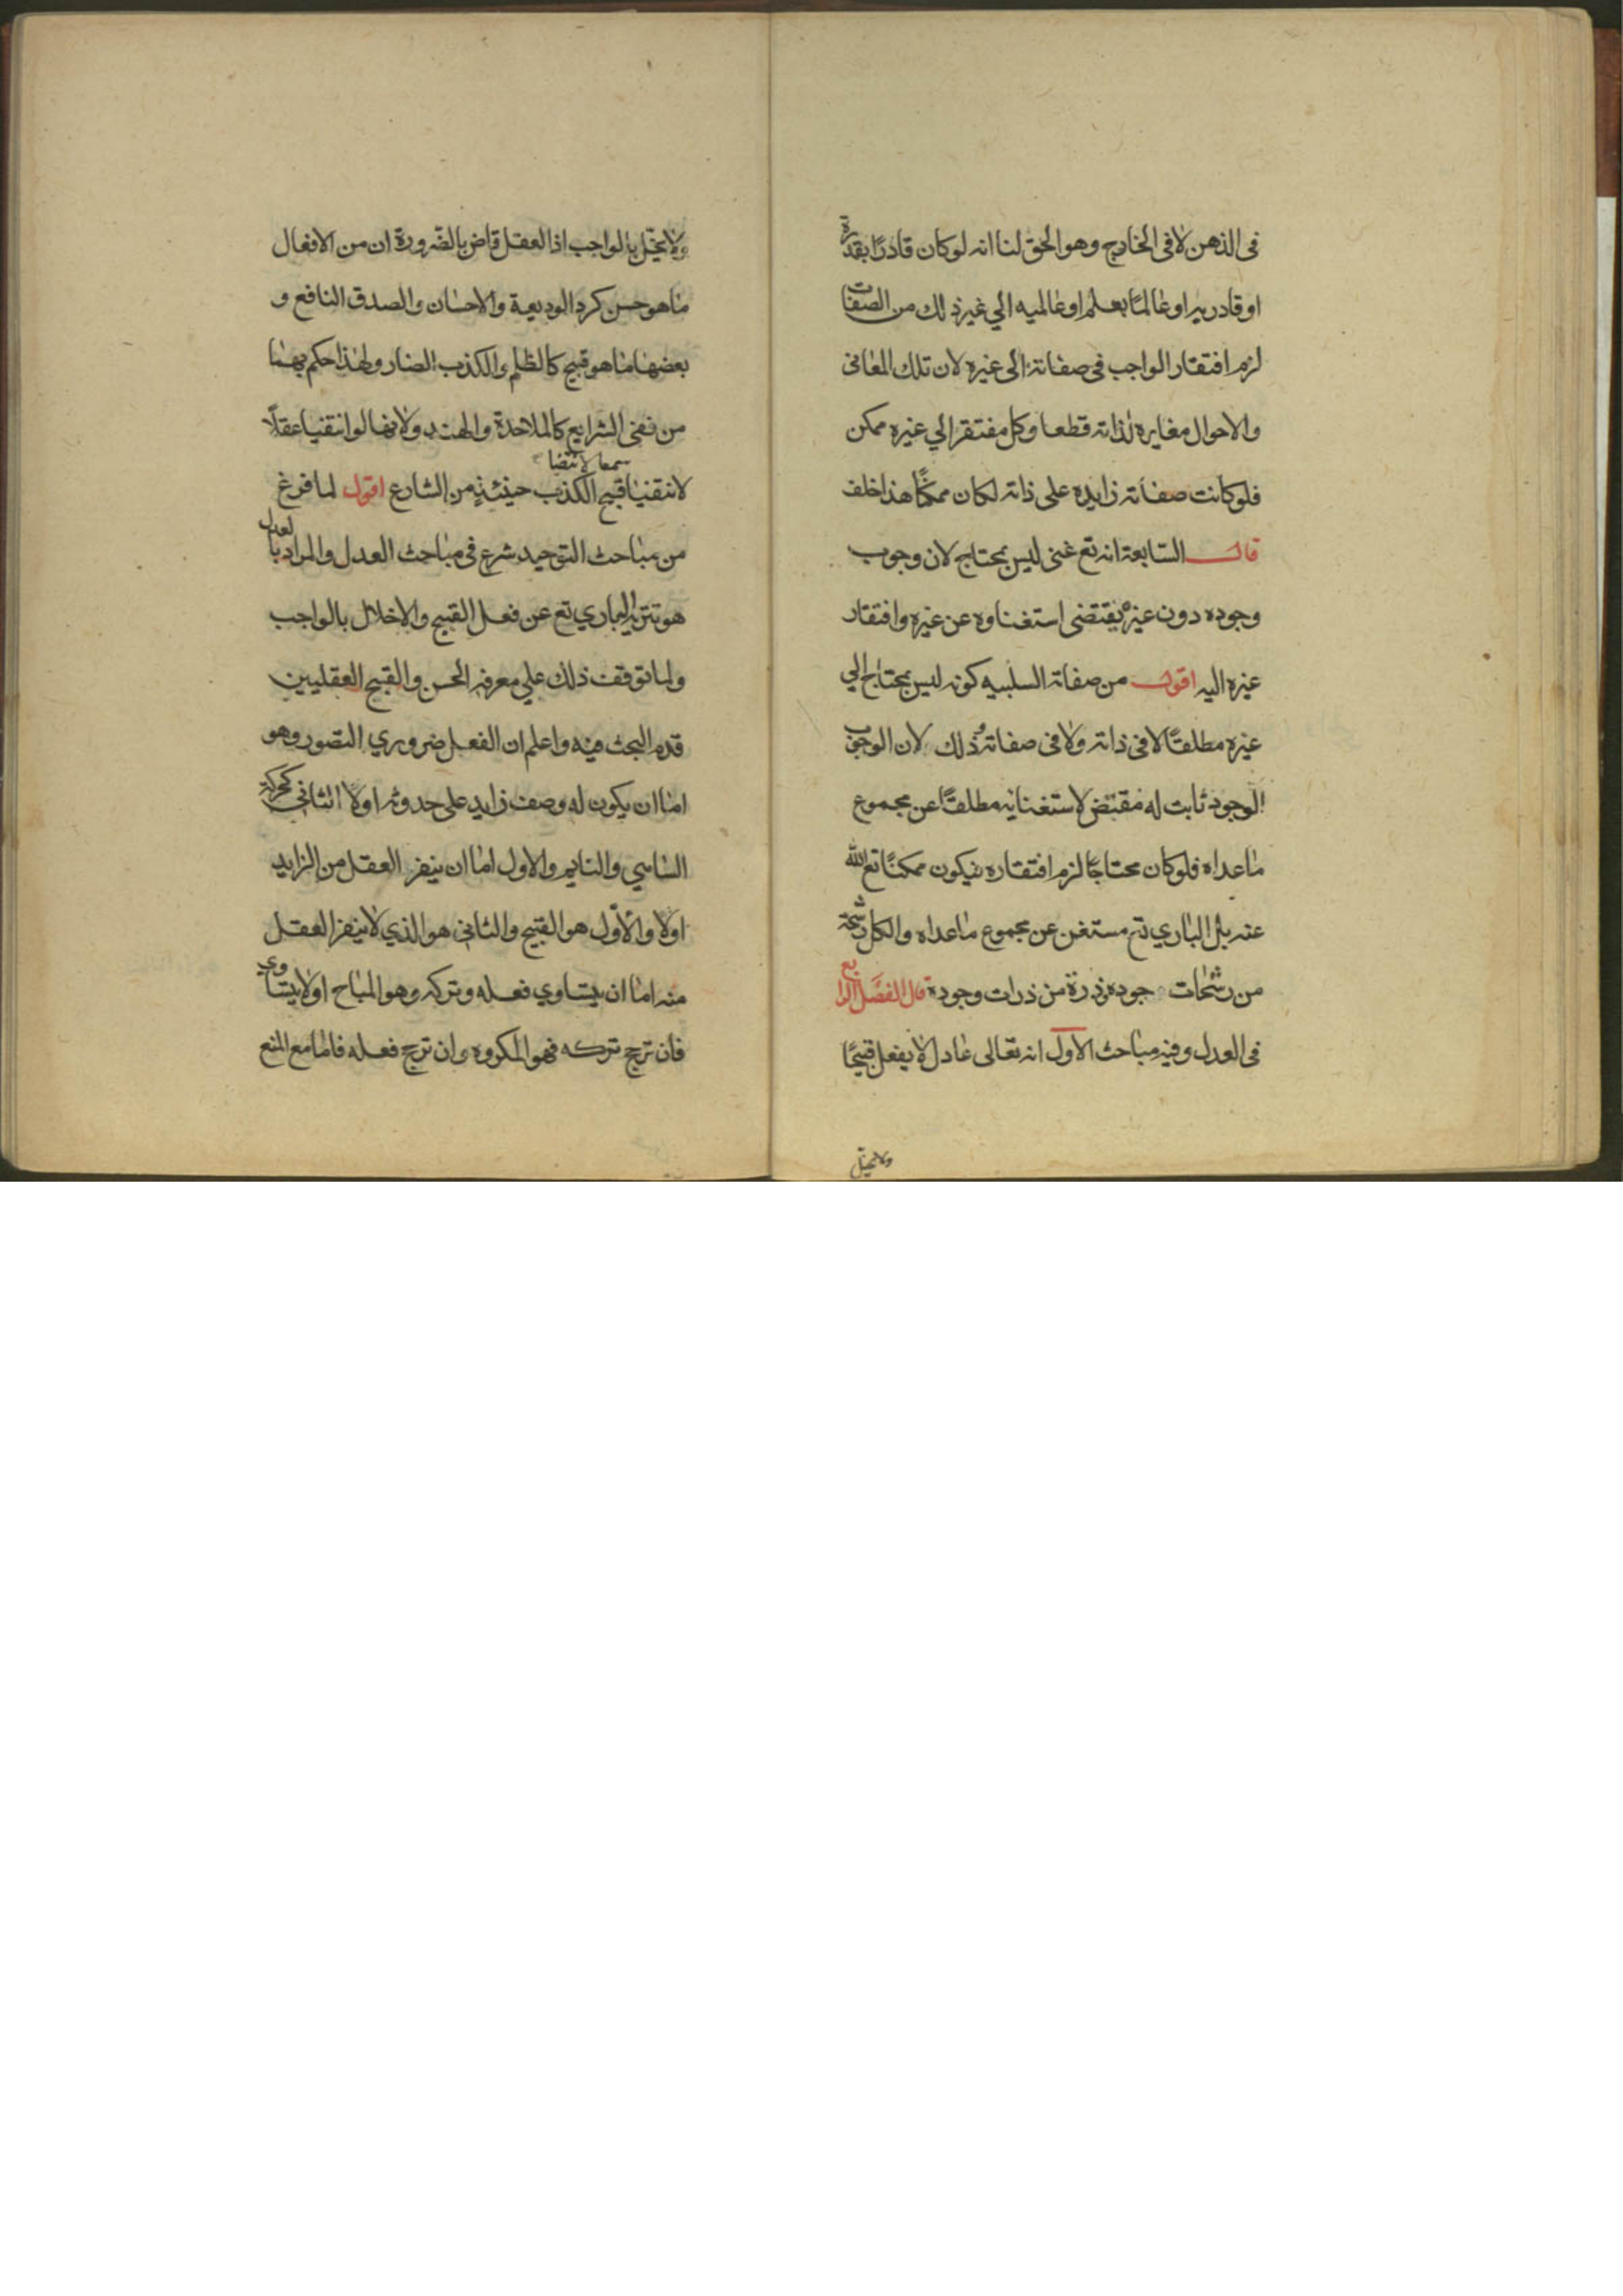 فى الذهن لا فى الخارج وهو الحق لنا انه لو كان قادرًا بقدرة
او قادريه او عالمًا بعلم او عالميه الي غير ذلك من الصفات
لزم افتقار الواجب فى صفاته الى غيره لان تلك المعانى
والاحوال مغايره لذاته قطعا وكل مفتقر الي غيره ممكن
فلو كانت صفاته زايده على ذاته لكان ممكنًا هذا خلف
قال السابعة انه تع غنى ليس بمحتاج لان وجوب
وجوده دون غيره يقتضى استغناوه عن غيره وافتقار
غيره اليه اقول من صفاته السلبيه كونه ليس بمحتاج الي
غيره مطلقًا لا فى ذاته ولا فى صفاته وذلك لان الوجوب
الوجود ثابت له مقتض لاستغنايه مطلقًا عن مجموع
ما عداه فلو كان محتاجًا لزم افتقاره فيكون ممكنًا تع الله
عنه بل الباري تع مستغن عن مجموع ما عداه والكل رشحة
من رشحات جوده وذرة من ذرات وجوده قال الفصل الرابع
فى العدل وفيه مباحث الاول انه تعالى عادل لا يفعل قبيحًا
ولا يخل
ولا يخل بالواجب اذ العقل قاض بالضرورة ان من الافعال
ما هو حسن كرد الوديعة والاحسان والصدق النافع و
بعضها ما هو قبيح كالظلم والكذب الضار ولهذا حكم بهما
من نفى الشرايع كالملاحدة والهند ولانهما لو انتفيا عقلًا
سمعا لانتفا
لانتفيا قبح الكذب حينئذٍ من الشارع اقول لما فرغ
من مباحث التوحيد شرع فى مباحث العدل والمراد بالعدل
هو تنزيه الباري تع عن فعل القبيح والاخلال بالواجب
ولما توقف ذلك علي معرفة الحسن والقبح العقليين
قدم البحث فيه واعلم ان الفعل ضروري التصور وهو
اما ان يكون له وصف زايد على حدوثه اولا الثاني كحركة
الساهي والنايم والاول اما ان ينفر العقل من الزايد
اولا والاوّل هو القبيح والثاني هو الذي لا ينفر العقل
منه اما ان يتساوي فعله وتركه وهو المباح اولا يتساوي
فان ترجح تركه فهو المكروه وان ترجح فعله فاما مع المنع